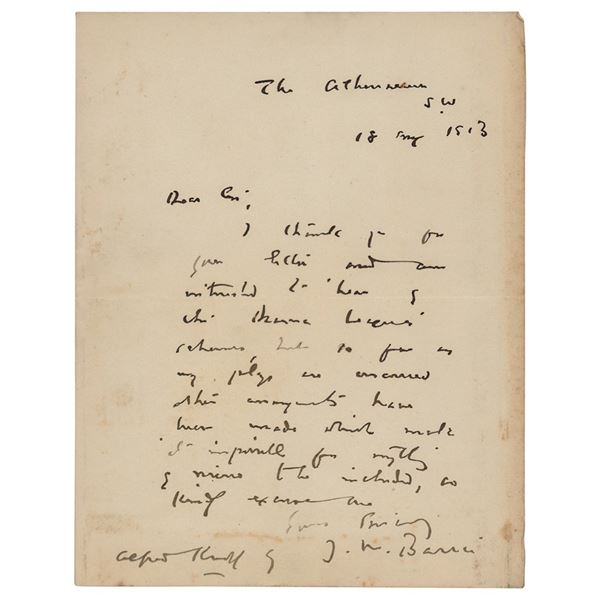 The Athenaeum
S.W
18 Aug 1913
Dear Sir,
I thank you for
your letter and am
interested to hear of
the Drama Leagues'
schemes, but so far as
my plays are concerned
other arrangements have
been made which make
it impossible for anything
of mine to be included, so
kindly excuse me
Yours sincerely
J. M. Barrie
Alfred Knopf Esq